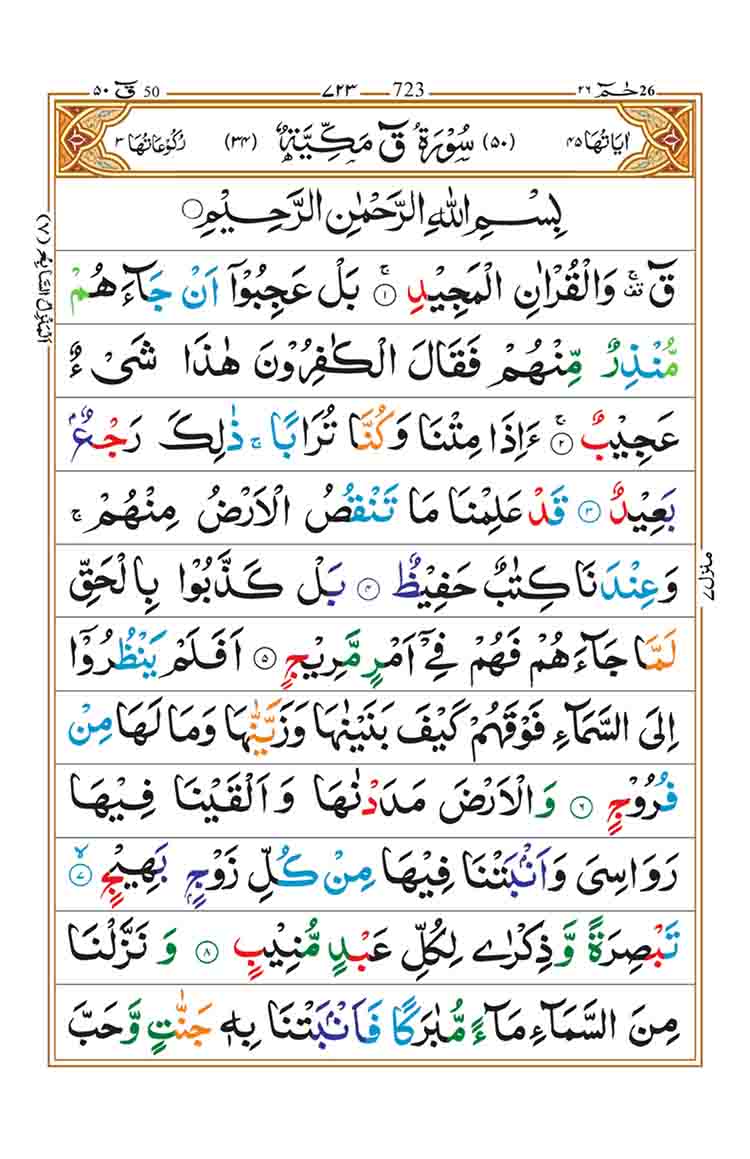 حٰمٓ 26 ٢٦ 723 ٧٢٣ 50 قٓ ٥٠
اٰيَاتُهَا ٤٥ (٥٠) سُوْرَةُ قٓ مَكِّيَّةٌ (٣٤) رُكُوْعَاتُهَا ٣
بِسْمِ اللّٰهِ الرَّحْمٰنِ الرَّحِيْمِ ○
قٓ ۚ قف وَالْقُرْاٰنِ الْمَجِيْدِ ۚ ١ بَلْ عَجِبُوْۤا اَنْ جَآءَهُمْ
مُّنْذِرٌ مِّنْهُمْ فَقَالَ الْكٰفِرُوْنَ هٰذَا شَیْءٌ
عَجِيْبٌ ۚ ٢ ءَاِذَا مِتْنَا وَكُنَّا تُرَابًا ۚ ذٰلِكَ رَجْعٌۢ
بَعِيْدٌ ٣ قَدْ عَلِمْنَا مَا تَنْقُصُ الْاَرْضُ مِنْهُمْ ۚ
وَعِنْدَنَا كِتٰبٌ حَفِيْظٌ ٤ بَلْ كَذَّبُوْا بِالْحَقِّ
لَمَّا جَآءَهُمْ فَهُمْ فِیْۤ اَمْرٍ مَّرِيْجٍ ٥ اَفَلَمْ يَنْظُرُوْۤا
اِلَى السَّمَآءِ فَوْقَهُمْ كَيْفَ بَنَيْنٰهَا وَزَيَّنّٰهَا وَمَا لَهَا مِنْ
فُرُوْجٍ ٦ وَالْاَرْضَ مَدَدْنٰهَا وَاَلْقَيْنَا فِيْهَا
رَوَاسِیَ وَاَنْۢبَتْنَا فِيْهَا مِنْ كُلِّ زَوْجٍۭ بَهِيْجٍ ۙ ٧
تَبْصِرَةً وَّذِكْرٰى لِكُلِّ عَبْدٍ مُّنِيْبٍ ٨ وَنَزَّلْنَا
مِنَ السَّمَآءِ مَآءً مُّبٰرَكًا فَاَنْۢبَتْنَا بِهٖ جَنّٰتٍ وَّحَبَّ
اَلْمَنْزِلُ السَّابِعُ (٧)
منزل ٧